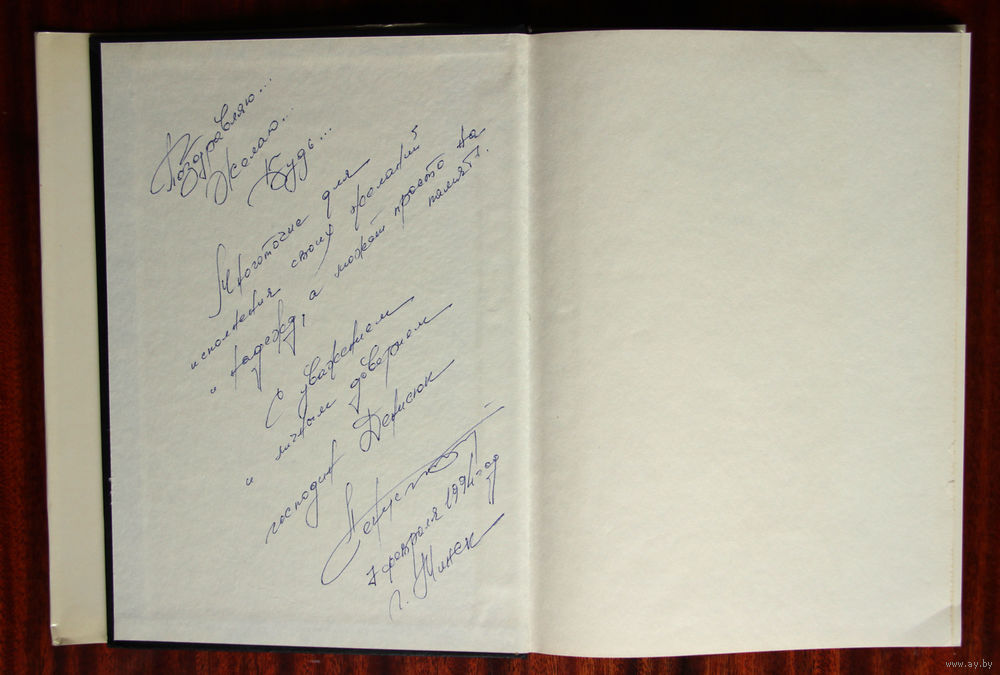 Поздравляю...
Желаю...
Будь...
Многоточие для
исполнения своих желаний
и надежд, а может просто на
память.
С уважением
и личным доверием
господин Денисюк
7 февраля 1994 год
г. Минск
www.ay.by